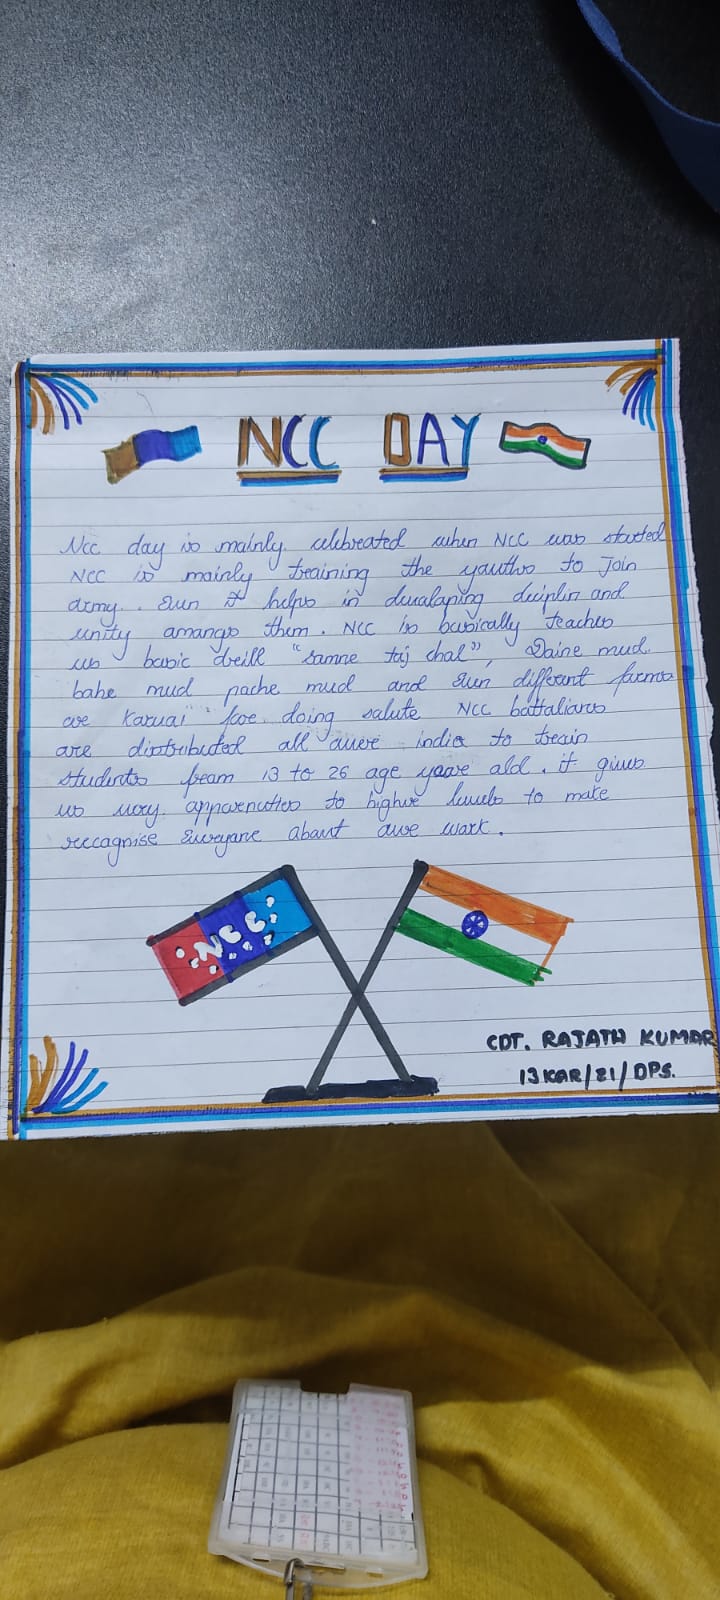 NCC DAY
Ncc day is mainly celebrated when NCC was started
NCC is mainly training the youths to join
army. Even it helps in develoying deciplin and
unity amangs them. NCC is basically teaches
us basic dreill "samne taj chal", Daine mud
bahe mud pache mud and Even different farms
are karuai fore doing salute NCC battalians
are distributed all avere india to treain
students fram 13 to 26 age yeare ald. it gives
us many to highre levels to make
reecagnise Evereyane abaut aure wark.
NCC
CDT. RAJATH KUMAR
13KAR/21/DPS.